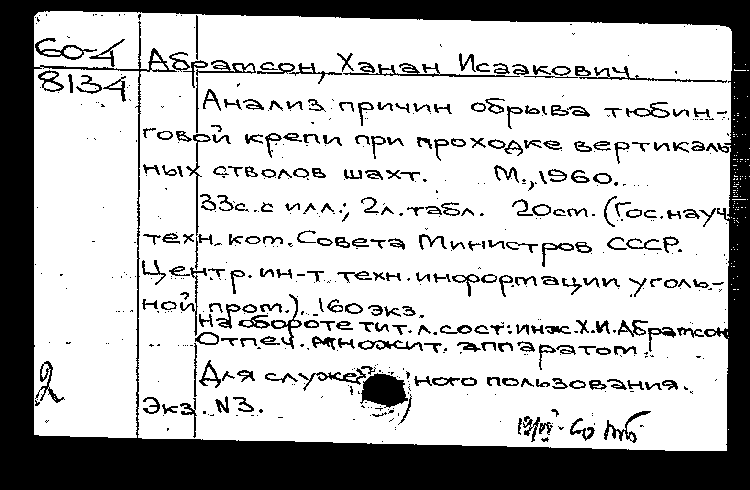 60-4
8134
Абрамсон, Ханан Исаакович.
Анализ причин обрыва тюбин-
говой крепи при проходке вертикаль
ных стволов шахт. М., 1960.
33с. с илл.; 2л. табл. 20см. (Гос. науч
техн. ком. Совета Министров СССР.
Центр. ин-т техн. информации уголь-
ной пром.). 160 экз.
На обороте тит. л. сост: инж. Х.И. Абрамсон
Отпеч. множит. аппаратом.
Для служебного пользования.
2
Экз. N3.